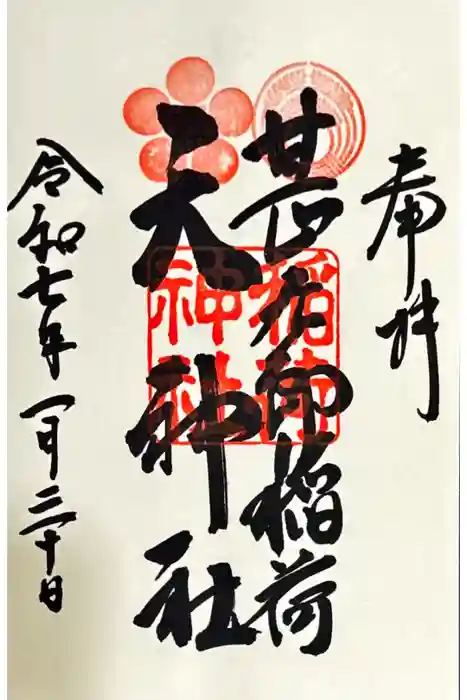 奉拝
甚九郎稲荷
天神社
稲荷
神社
令和七年一月三十日